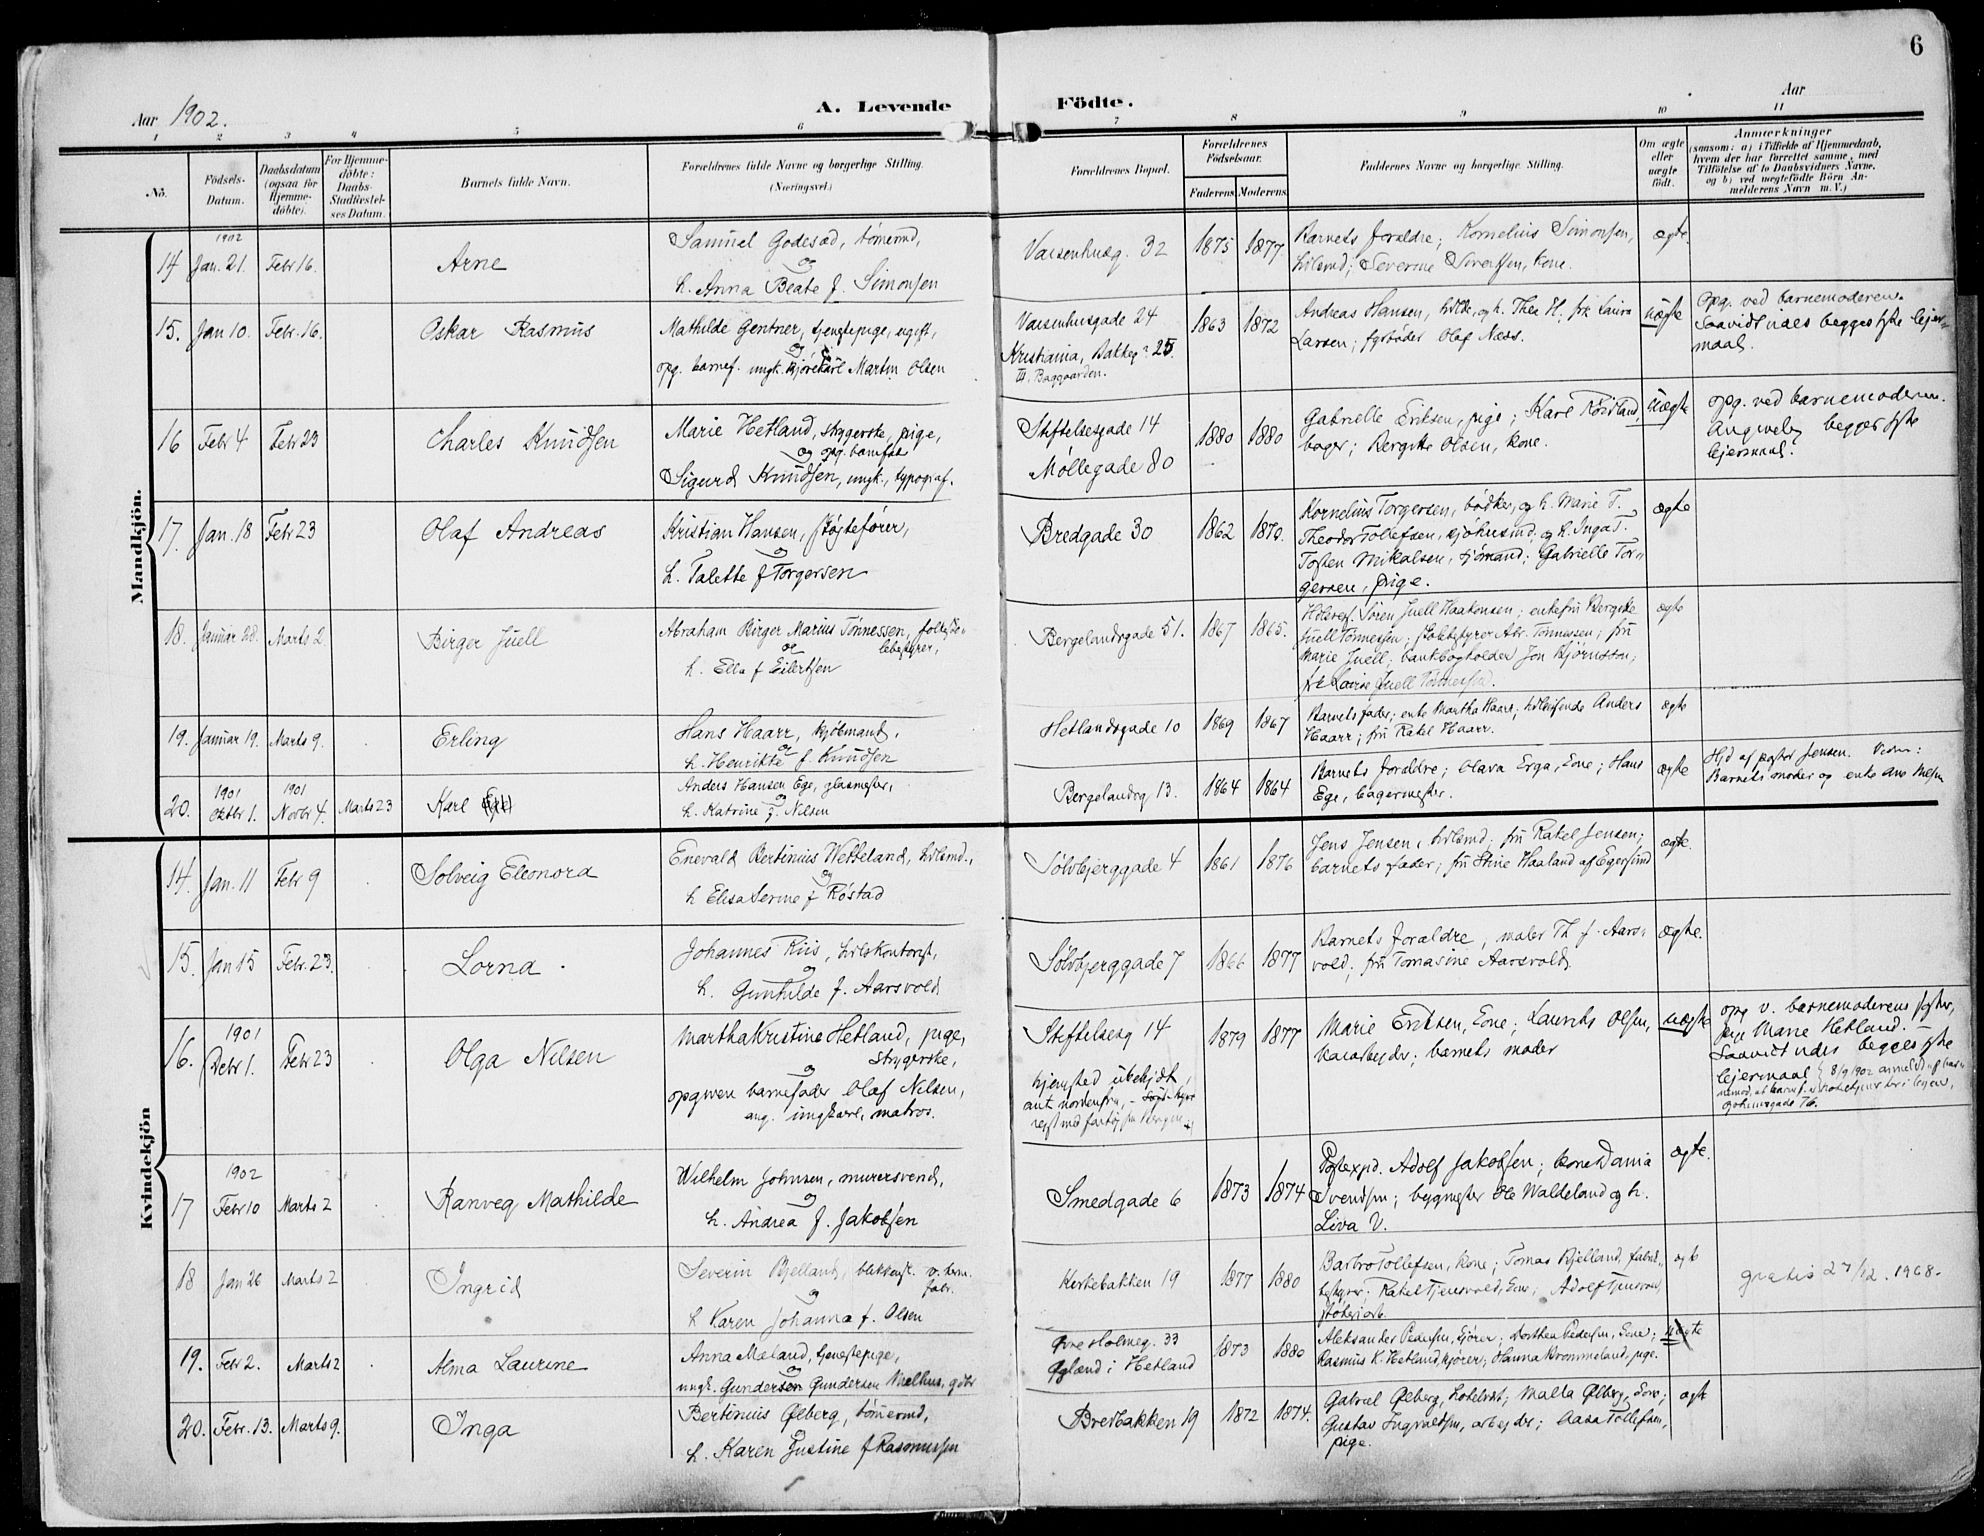 6
Aar 1902.
A. Levende Födte.
Aar
1 2 3 4 5 6 7 8 9 10 11
No.
Födsels-Datum.
Daabsdatum (ogsaa for Hjemme-döbte).
For Hjemme-döbte: Daabs-Stadfæstel-ses Datum.
Barnets fulde Navn.
Forældrenes fulde Navne og borgerlige Stilling. (Næringsvei.)
Forældrenes Bopæl.
Forældrenes Födselsaar.
Faderens Moderens
Faddernes Navne og borgerlige Stilling.
Om ægte eller uægte födt.
Anmærkninger
(saasom: a) i Tilfælde af Hjemmedaab, hvem der har forrettet samme, med Tilföielse af to Daabsvidners Navne, og b) ved uægtefödte Börn Anmelderens Navn m. V.)
Mandkjön.
14 1902 Jan. 21. Febr 16. Arne
Samuel Godesæd, tömermd,
og
h. Anna Beate f. Simonsen
Vaisenhusg. 32 1875 1877.
Barnets forældre; Kornelius Simonsen,
hdlsmd; Severine Sivertsen, kone.
ægte.
15. Jan 10. Febr. 16. Oskar Rasmus
Mathilde Gentner, tjenestepige, ugift,
og
opg. barnef. ungk. kjörekarl Martin Olsen
Vaisenhusgade 24
Kristiania, Bakkeg. 25.
III. Baggaarden.
1863 1872
Andreas Hansen, hdlk, og h. Thea H; frk Laura
Larsen; fyrböder Olaf Næss.
uægte
Opg. ved barnemoderen.
Saavidt vides begges 1ste leier-
maal.
16 Febr 4 Febr 23 Charles Knudsen
Marie Hetland, strygerske, pige,
og opg. barnfar
Sigurd Knudsen, ungk., typograf.
Stiftelsesgade 14
Møllegade 80
1880 1880
Gabrielle Eriksen, pige; Karl Röisland,
bager; Bergitte Olsen, kone.
uægte
opg. ved barnemoderen.
Angivelig begges 1ste
leiermaal.
17. Jan. 18 Febr 23 Olaf Andreas
Kristian Hansen, skøitefører,
og
h. Talette f Torgersen
Bredgade 30 1862 1870.
Kornelius Torgersen, bödker, og h. Marie T.
Theodor Tollefsen, sjöhusmd, og h. Inga T.
Tosten Mikalsen, sjömand; Gabrielle Tor-
gersen, pige.
ægte
18. Januar 28. Marts 2 Birger Juell
Abraham Birger Marius Tönnessen,
og
h. Ella f Eilertsen
Bergelandsgade 51. 1867 1865.
Søren Juell Haakonsen; enkefru Bergitte
Juell Tönnessen; skolebestyrer Abr. Tönnessen; fru
Marie Juell; bankbogholder Jon Bjørnsson;
frk Lavine Juell Tönnessen.
ægte
19. Januar 19. Marts 9. Erling
Hans Haarr, kjöbmand,
og
h. Henrikke f. Knudsen
Hetlandsgade 10 1869 1867
Barnets fader; enke Martha Haarr; hdlreisende Anders
Haarr; fru Rakel Haarr.
ægte
20. 1901 Oktbr 1. 1901 Novbr 4. Marts 23 Karl
Anders Hansen Ege, glasmester,
og
h. Katrine f. Nilsen
Bergelandsg 13. 1864 1864
Barnets forældre; Olava Erga, Kone; Hans
Ege, bagermester.
ægte
Hjd af pastor Jensen. Vidn:
Barnets moder og enke Ane Nilsen
Kvindekjön
14. Jan. 11 Febr 9 Solveig Eleonora
Enevald Bertinius Wetteland, hdlsmd.,
og
h Elisa Serine f Röstad
Sölvbjerggade 4 1861 1876
Jens Jensen, hdlsmd; fru Rakel Jensen;
barnets fader; fru Stine Haaland af Egersund
ægte.
15. Jan 15 Febr. 23. Lorna
Johannes Riis, hdlskontorist,
og
h. Gunhilde f. Aarsvold
Sölvbjerggade 7 1866 1877
Barnets forældre, maler Th f. Aars-
vold; fru Tomasine Aarsvold.
ægte.
16. 1901 Debr 1. Febr 23 Olga Nilsen
Martha Kristine Hetland, pige,
strygerske,
og
opgiven barnefader Olaf Nilsen,
ang. ungkarl, matros.
Stiftelsesg 14
hjemsted ubekjdt,
ant. nordenfra,
1879 1877
Marie Eriksen, Kone; Laurits Olsen,
havarbeider; barnets moder
uægte
opg v. barnemoderens søster,
pige Marie Hetland.
Saavidt vides begges 1ste
leiermaal 8/9 1902 anmeldt
17 1902 Febr 10 Marts 2 Ranveg Mathilde
Wilhelm Johnsen, murersvend,
og
h. Andrea f. Jakobsen
Smedgade 6 1873 1874
Postexpd. Adolf Jakobsen; kone Dania
Svendsen; bygmester Ole Walleland og h.
Liva V.
ægte.
18 Jan 26 Marts 2 Ingrid
Severin Bjelland, blikkensl. v. herm.
fabr.
og
h Karen Johanna f. Olsen
Kirkebakken 19 1877 1880
Barbro Tollefsen, kone; Tomas Kjelland, fabrik-
bestyrer; Rakel Tjensvold, Kone; Adolf Tjensvold,
støberiarb.
ægte
gratis 27/12. 1968.
19. Febr 2. Marts 2 Alma Laurine
Anna Mæland, tjenestepige,
og
ungk. Gundersen Gundersen Mælhus, gdbr
Øvre Holmeg. 33
Øglænd i Hetland
1873 1880
Aleksander Pedersen, kjörer; Dorthea Pedersen, Kone;
Rasmus K. Hetland, kjörer; Hanna Krommeland, pige.
uægte
20. Febr. 13. Marts 9. Inga
Bertinius Ølberg, tömermd,
og
h. Karen Justine f Rasmussen
Bredbakken 19 1872 1874.
Gabriel Ølberg, hotelvært; Malla Ølberg, Kone;
Gustav Ingvaldsen, arbeider; Aasa Tollefsen,
pige.
ægte